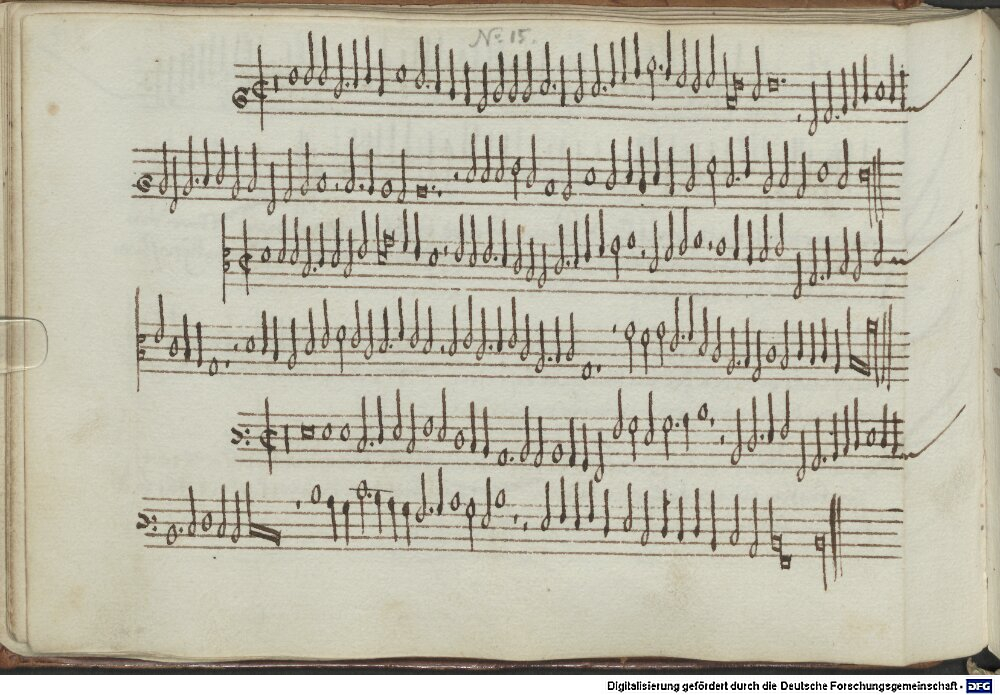 No 15.
Digitalisierung gefördert durch die Deutsche Forschungsgemeinschaft - DFG